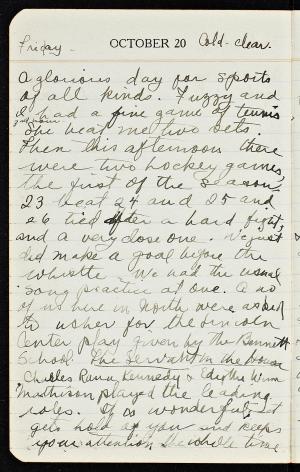 Friday - OCTOBER 20 Cold - clear.
A glorious day for sports
of all kinds. Fuzzy and
I had a fine game of tennis
She beat me two sets.
Then this afternoon there
were two hockey games,
the first of the season.
23 beat 24 and 25 and
26 tied after a hard fight,
and a very close one. We just
did make a goal before the
whistle. We had the usual
song practice at one. A no
of us here in North were asked
to usher for the Lincoln
Center play given by the Bennett
School. The Servant in the House
Charles Rann Kennedy & Edith Wynn
Matthison played the leading
roles. It is wonderful, it
gets hold of you and keeps
your attention the whole time